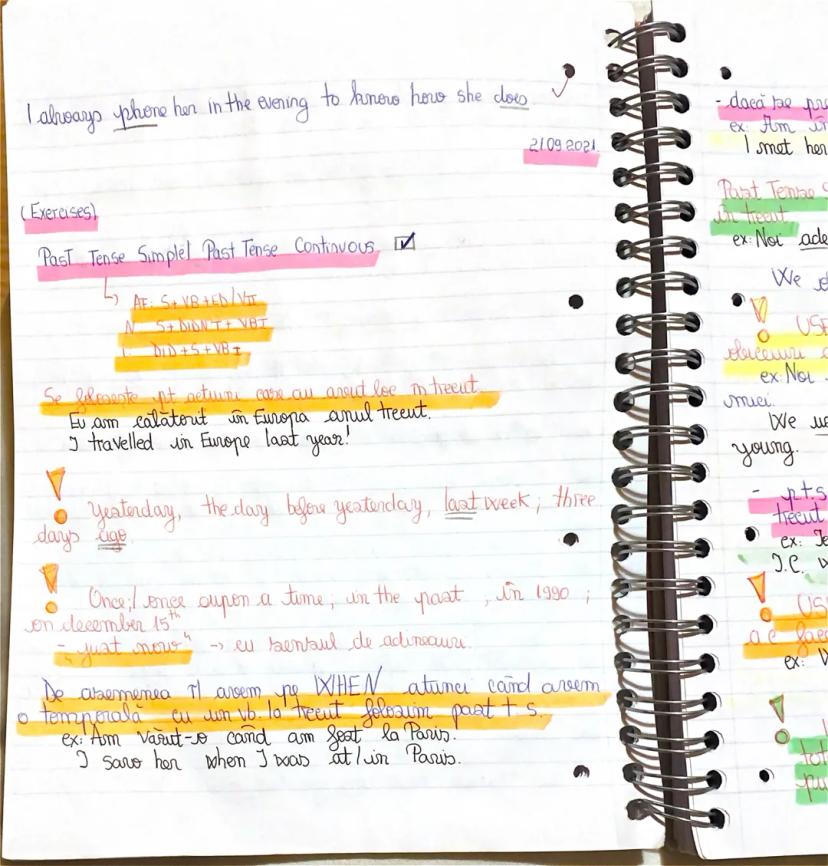 I always phone her in the evening to know how she does.
21.09.2021.
(Exercises)
Past Tense Simple/ Past Tense Continuous ☑
AF: S+VB+ED/VII
N S+DIDN'T+VBI
I: DID+S+VBI
Se folosește pt acțiuni care au avut loc în trecut.
Eu am călătorit în Europa anul trecut.
I travelled in Europe last year!
! Yesterday, the day before yesterday, last week; three
days ago
! Once; / once oupon a time; in the past, în 1990;
on december 15th
- "just now" → cu sensul de adineauri.
De asemenea îl avem pe WHEN atunci când avem
o temporală cu un vb. la trecut folosim past t s.
ex: Am văzut-o când am fost la Paris.
I saw her when I was at/in Paris.
- dacă se
ex: Am
I met her
Past Tense
în trecut
ex: Noi
We
!
ex: Noi
mici.
We
young.
- pt.
trecut
ex:
J.C.
!
a
ex:
!